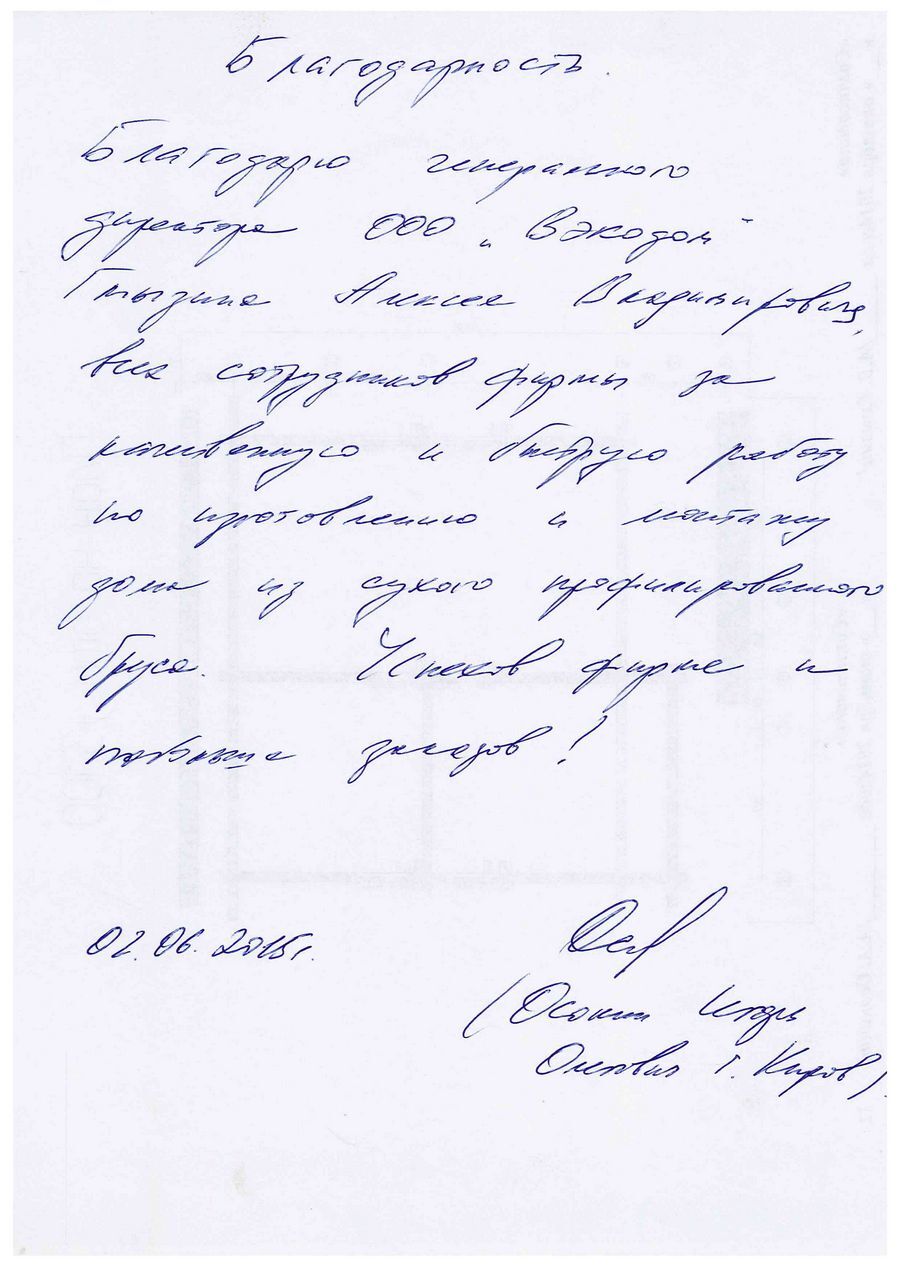 Благодарность.
Благодарю генерального
директора ООО „Вэкодом"
Глызина Алексея Владимировича,
всех сотрудников фирмы за
качественную и быструю работу
по изготовлению и монтажу
дома из сухого профилированного
бруса. Успехов фирме и
побольше заказов!
02.06.2015г.
(Осокин Игорь
Олегович г. Киров).